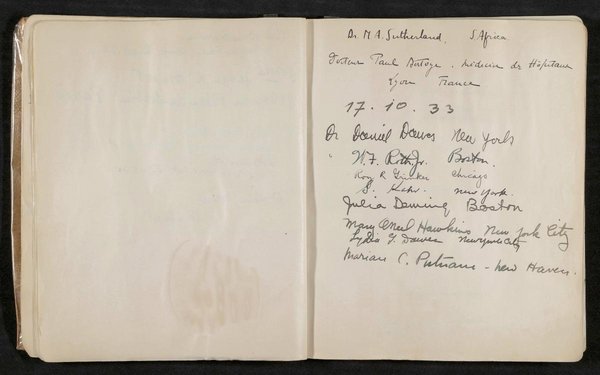 Dr. M. A. Sutherland. S. Africa
Docteur Paul . médecin des Hôpitaux
Lyon France
17 . 10 . 33
Dr Daniel Dawes New York
" W. F. Roth Jr. Boston.
Roy R. Grinker Chicago
S. New York.
Julia Deming Boston
Mary O'Neil Hawkins New York City
Lydia G. Dawes New York City
Marian C. Putnam - New Haven.